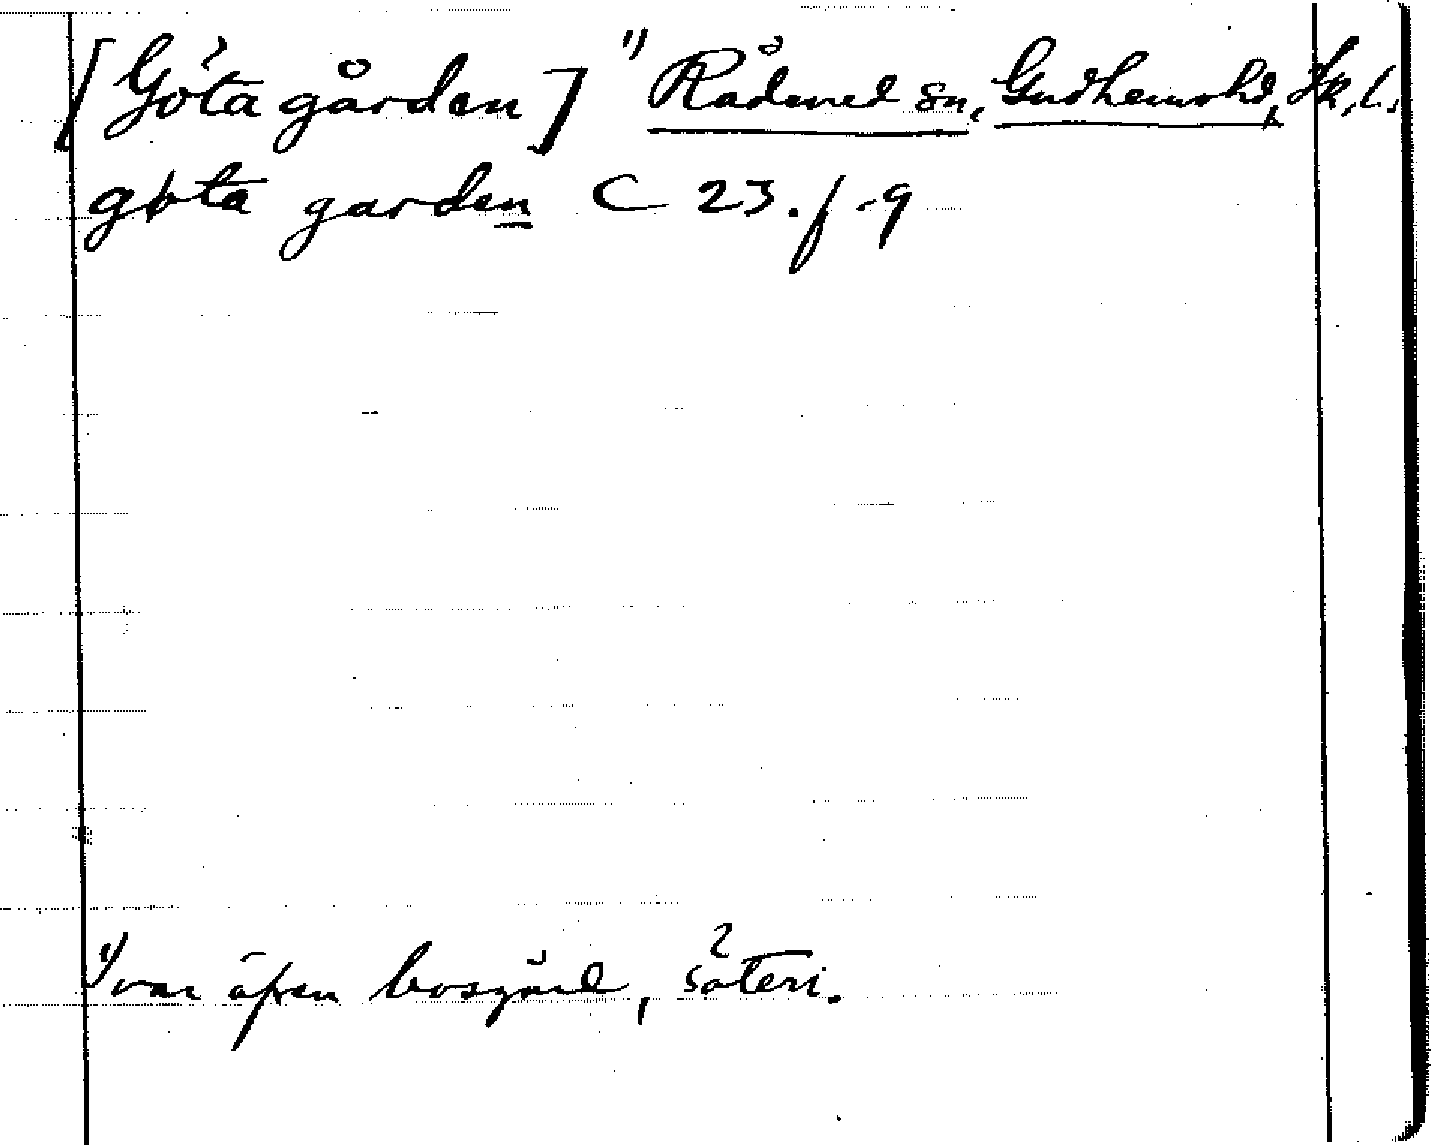 [Götagården] 1) Rådened sn, Gudhems hd, Sk. l.
gøta garden C 23. f. 9
1) var äfven bosgård, säteri.